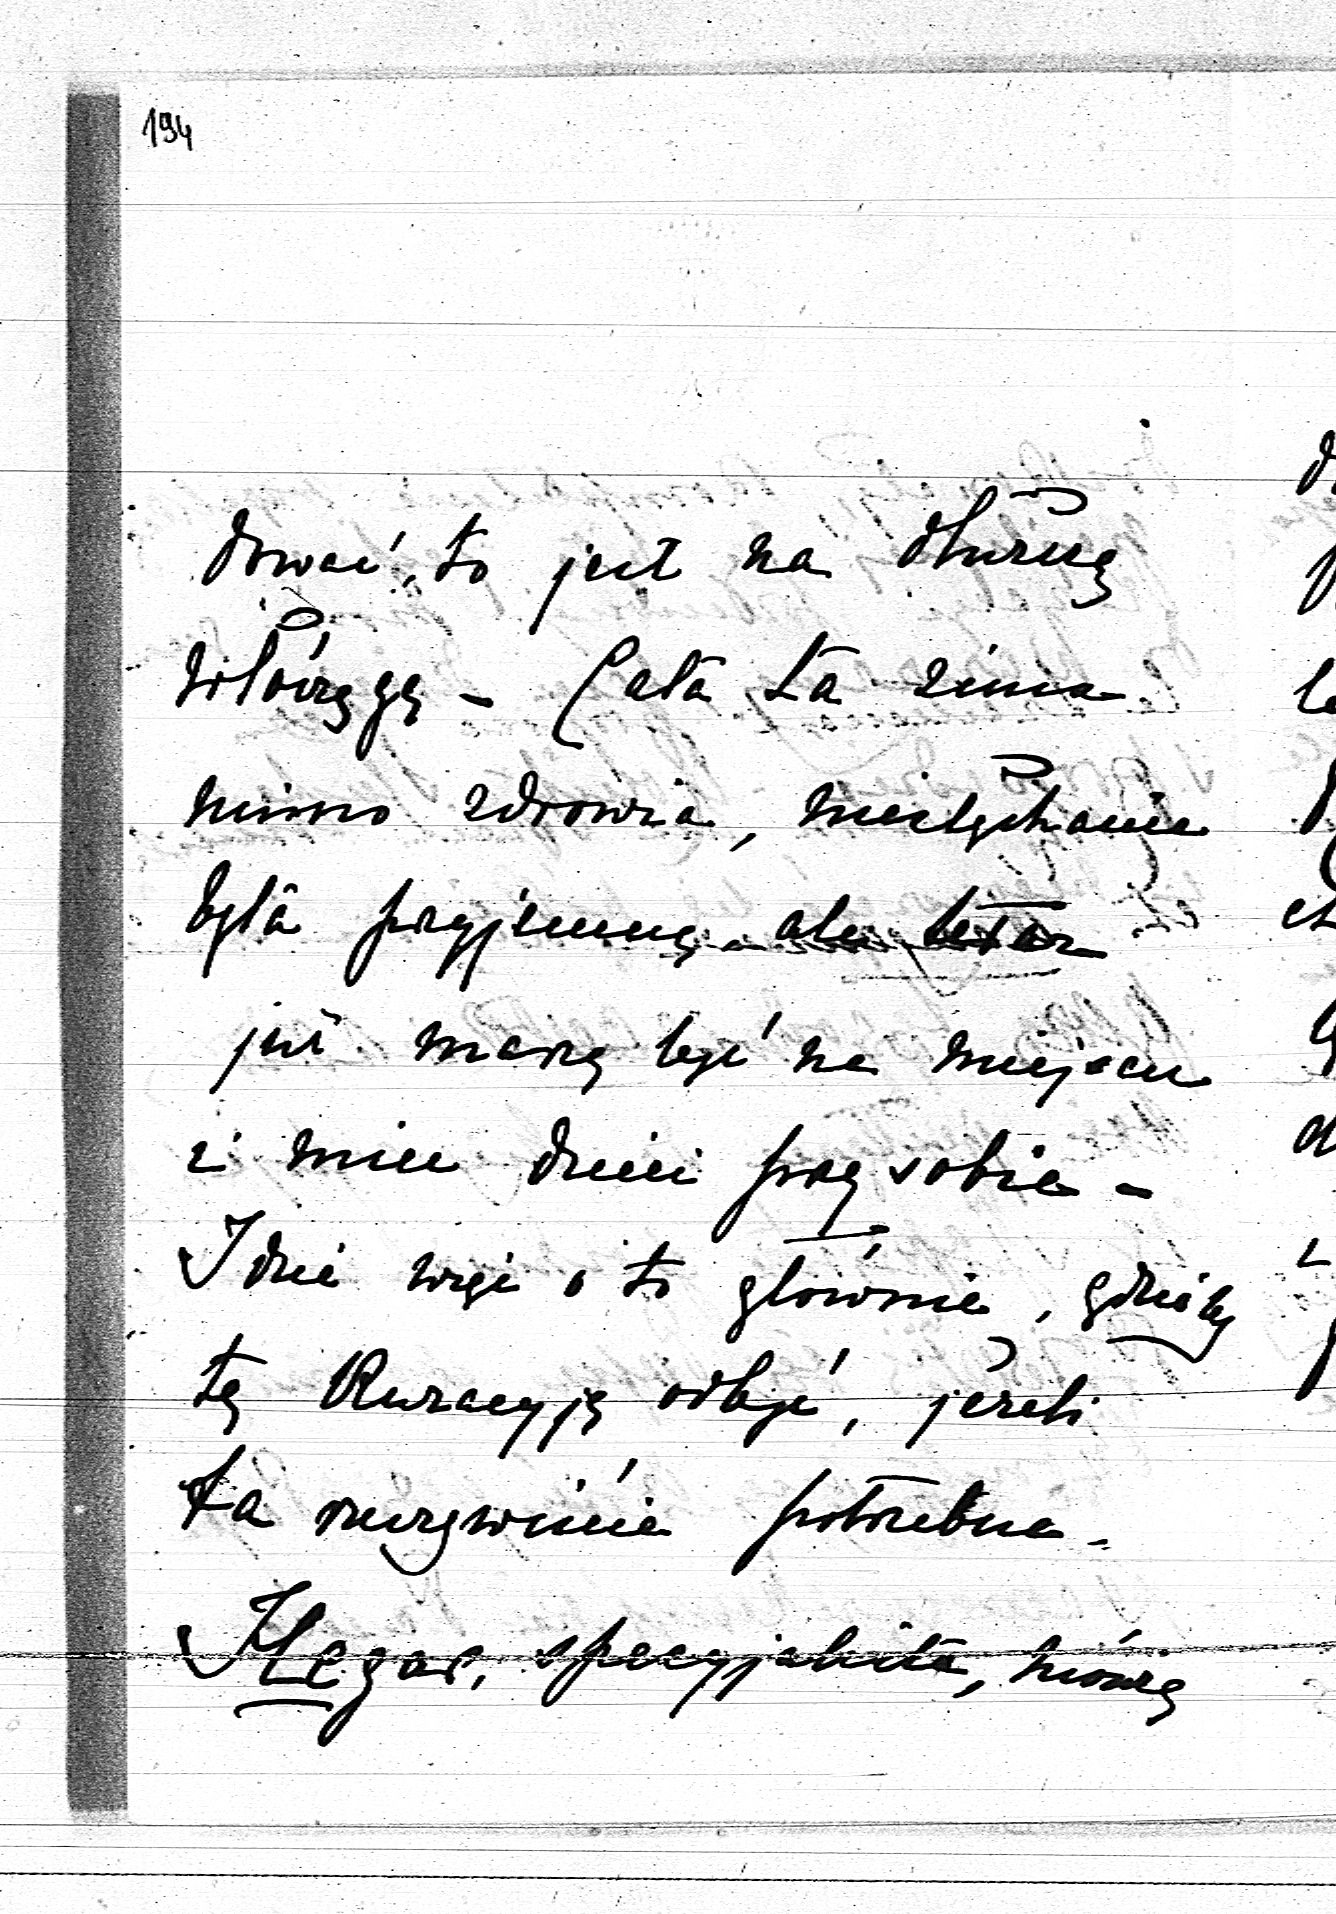 194
dować, to jest na dłuższą
włóczęgę – Cała ta zima
mimo zdrowia, niesłychanie
była przyjemną, ale teraz
już marzę być na miejscu
i mieć dzieci przy sobie –
Idzie więc o to głównie, gdzieby
tę Kuracyję odbyć, jeżeli
ta rzeczywiście potrzebna.
Hegar, specyjalista, mówię